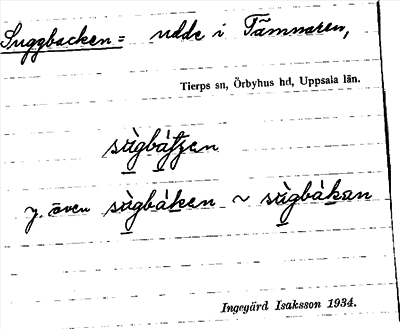 Suggbacken = udde i Tämnaren,
Tierps sn, Örbyhus hd, Uppsala län.
sùgbàʃʒen
y. även sùgbàken ~ sùgbàkan
Ingegärd Isaksson 1934.